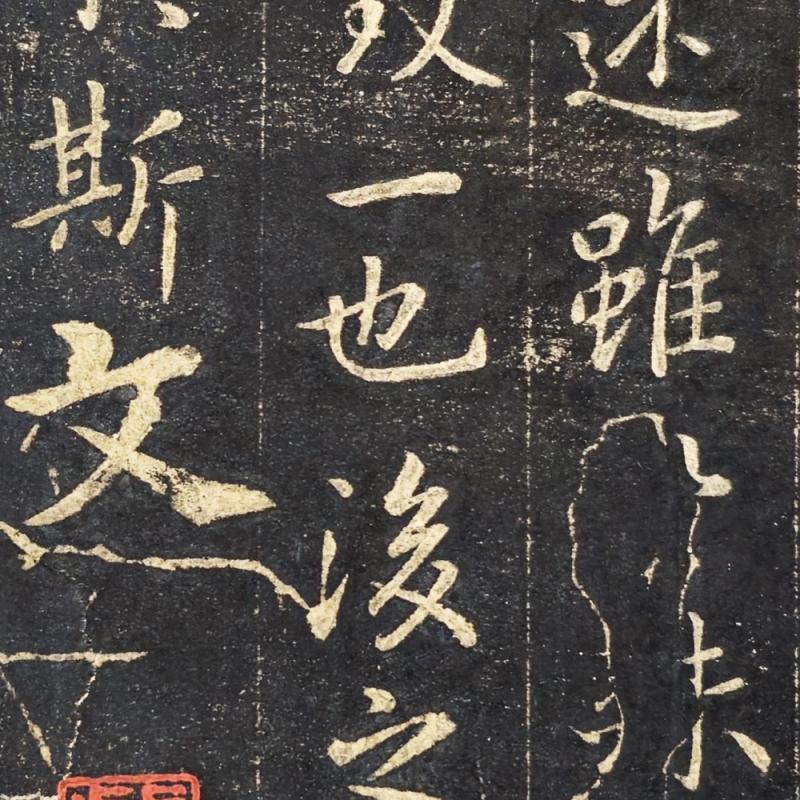 述雖殊
致一也後之
斯文